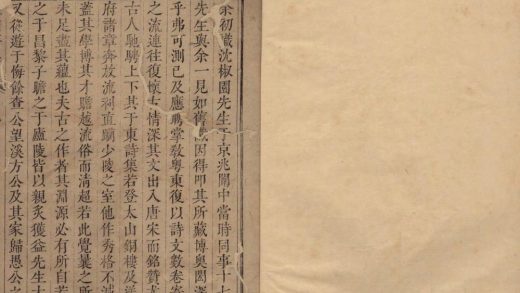 余初識沈椒園先生于京兆闈中當時同事十七
先生與余一見如舊識因得叩其所藏博奥閎深
乎弗可測已及應聘掌敎粤東復以詩文數卷
之流連往復懷古情深其文出入唐宋而銘贊
古人馳騁上下其于東詩集若登太山銅樓及
府諸章奔放流詞直闖少陵之室他作秀格不減
蓋其學博其才贍越流俗而清超若此覺曩之所
未足盡其蘊也夫古之作者其淵源必有所自若
之于昌黎子瞻之于廬陵皆以親炙獲益先生
又從遊于悔餘查公望溪方公及其家歸愚公之